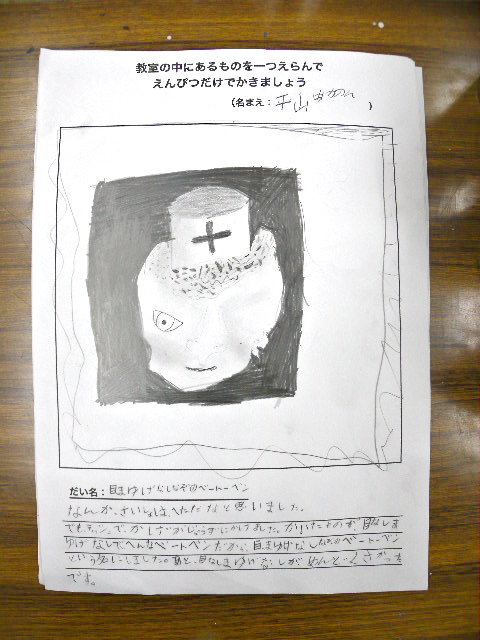 教室の中にあるものを一つえらんで
えんぴつだけでかきましょう
(名まえ：平山 )
だい名：目まゆげなしなぞのベートーベン
なんか、さいしょは、へただなと思いました。
でも、 でかしげがじょうずにかけました。かいたものが、目なしま
ゆげなしでへんなベートーベンだから、目まゆげなしなぞのベートーベン
という名にしました。あと、目なしまゆげなしがめんどくさかった
です。